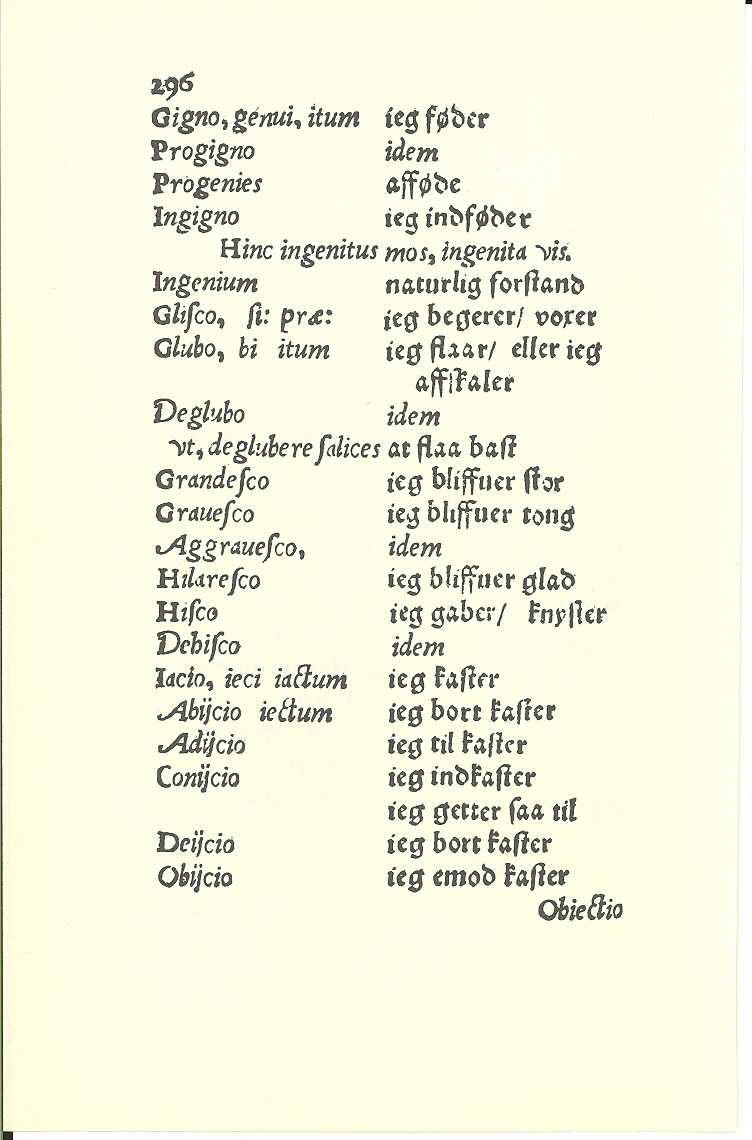 296
Gigno, genui, itum ieg føder
Progigno idem
Progenies afføde
Ingigno ieg indføder
Hinc ingenitus mos, ingenita vis.
Ingenium naturlig forſtand
Gliſco, ſi: præ: ieg begerer/ voxer
Glubo, bi itum ieg flaar/ eller ieg
affſkaler
Deglubo idem
vt, deglubere ſalices at flaa baſt
Grandeſco ieg bliffuer ſtor
Graueſco ieg bliffuer tong
Aggraueſco, idem
Hilareſco ieg bliffuer glad
Hiſco ieg gaber/ knyſter
Dehiſco idem
Iacio, ieci iactum ieg kaſter
Abijcio iectum ieg bort kaſter
Adijcio ieg til kaſter
Conijcio ieg indkaſter
ieg getter ſaa til
Deijcio ieg bort kaſter
Obijcio ieg emod kaſter
Obiectio